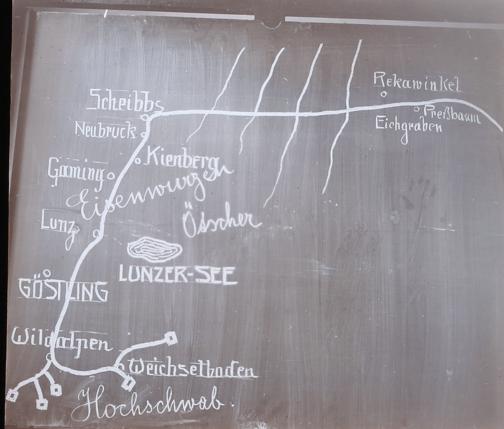 Rekawinkel
Scheibbs
Preßbaum
Neubruck
Eichgraben
Kienberg
Gaming
Eisenwurzen
Ötscher
Lunz
LUNZER-SEE
GÖSTLING
Wildalpen
Weichselboden
Hochschwab.